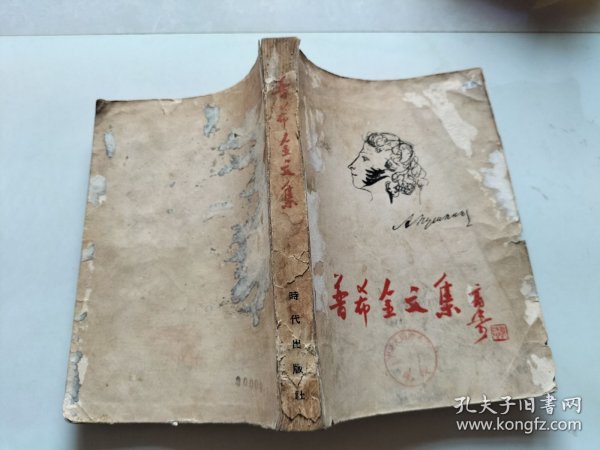 普希金文集
時代出版社
А Пушкин
普希金文集
孔夫子旧书网
www.kongfz.com